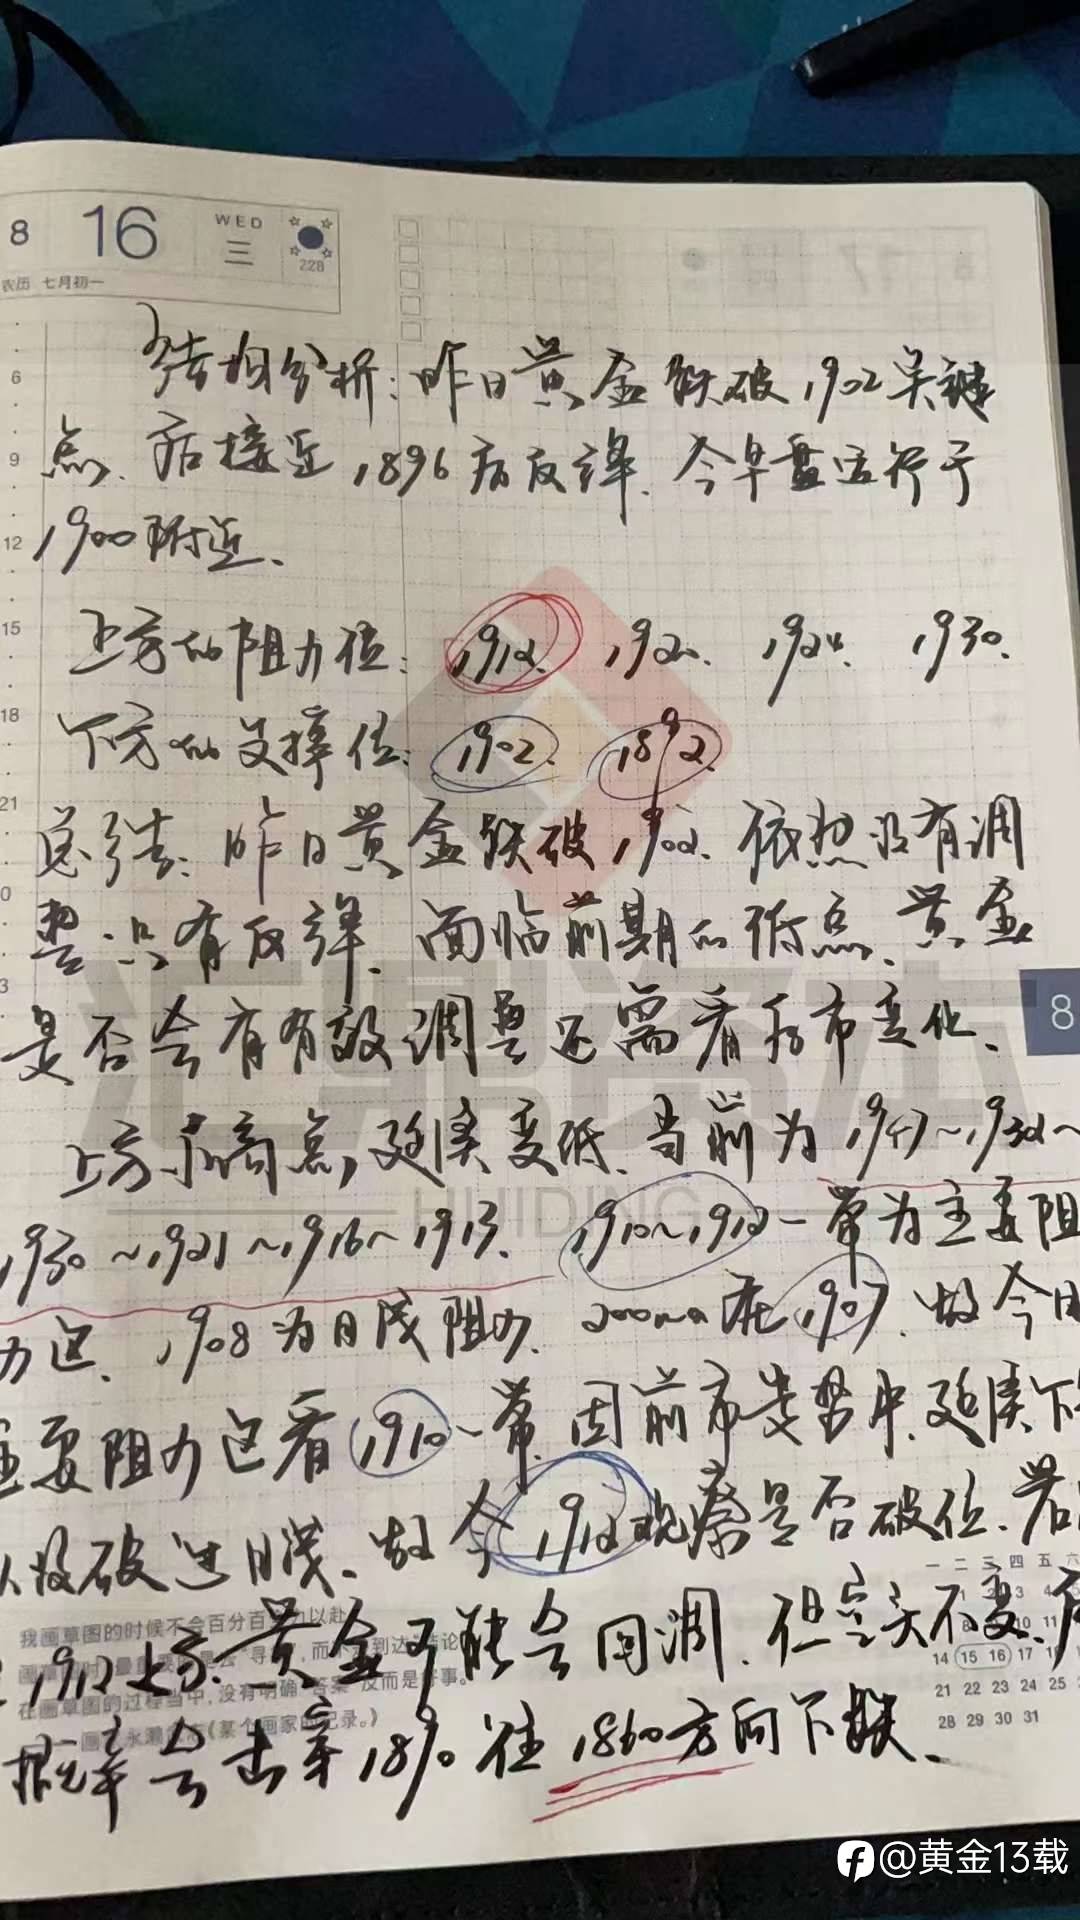 8 16 WED 三 228
农历 七月初一
结构分析：昨日黄金跌破1902关键
点、后接近1896后反弹、今早盘运行于
1900附近、
上方的阻力位：1912、1920、1924、1930、
下方的支撑位：1902、1892、
总结：昨日黄金跌破1902、依然没有调
整、只有反弹、面临前期的低点、黄金
是否会有有效调整还需看后市变化、
上方高点延续变低、当前为1947～1932～
1930～1921～1916～1913、1910～1912一带为主要阻
力区、1908为日线阻力、200ma在1907、故今日
主要阻力区看1910一带、因前市走势中、延续下
以没破过日线、故今1912观察是否破位、若
1912上方、黄金可能会回调、但空头不变、
概率会击穿1890往1860方向下跌、
6
9
12
15
18
21
0
3
8
我画草图的时候不会百分百 以赴
一 二 三 四 五 六
14 15 16 17
21 22 23 24 25
28 29 30 31
汇鼎资本
HUIDING
@黄金13载